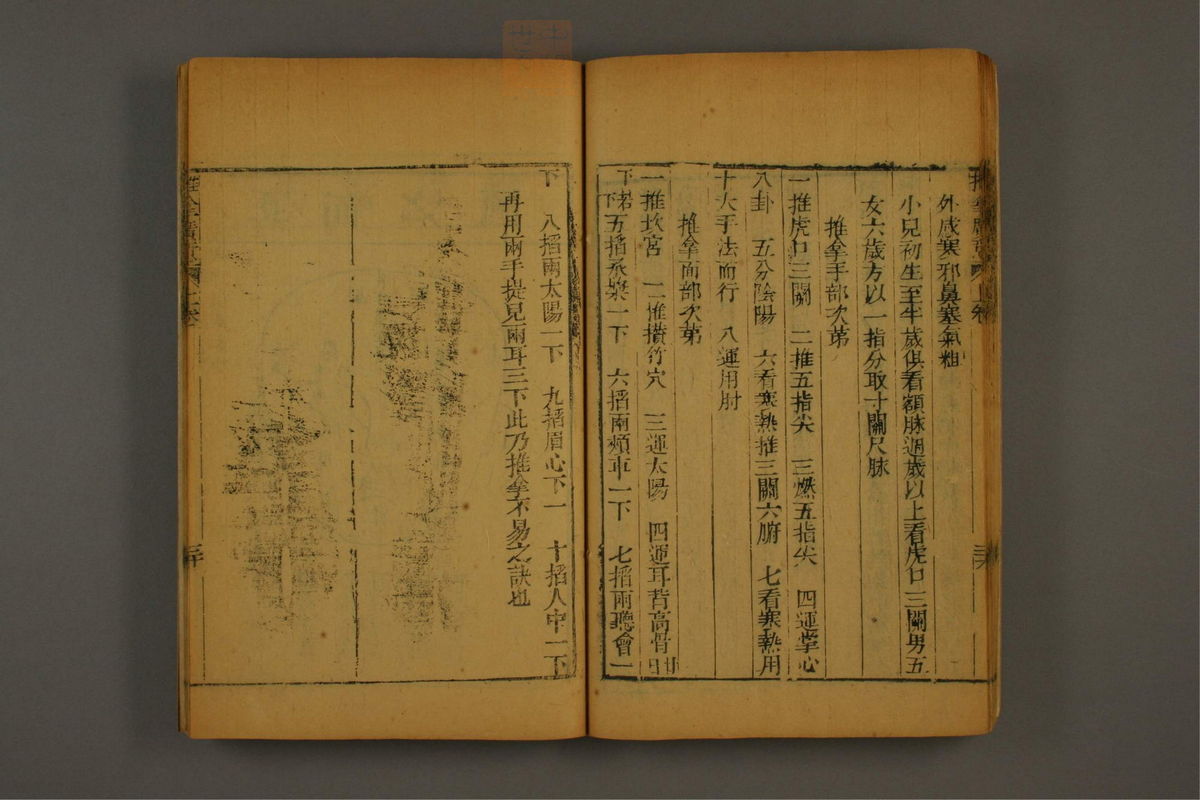 外感寒邪鼻塞氣粗
小兒初生至半歲俱看額脉週歲以上看虎口三關男五
女六歲方以一指分取寸關尺脉
推拿手部次第
一推虎口三關　二推五指尖　三燃五指尖　四運掌心
八卦　五分陰陽　六看寒熱推三關六腑　七看寒熱用
十大手法而行　八運用肘
推拿面部次第
一推坎宮　二推攢竹穴　三運太陽　四運耳背高骨廿四
下　五掐承漿一下　六掐兩頰車一下　七掐兩聽會一
下　八掐兩太陽一下　九掐眉心下一　十掐人中一下
再用兩手提兒兩耳三下此乃推拿不易之訣也